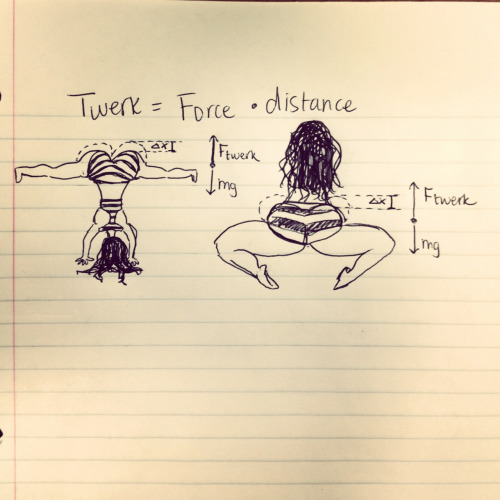 Twerk = Force • distance
Δx
Ftwerk
mg
Δx
Ftwerk
mg